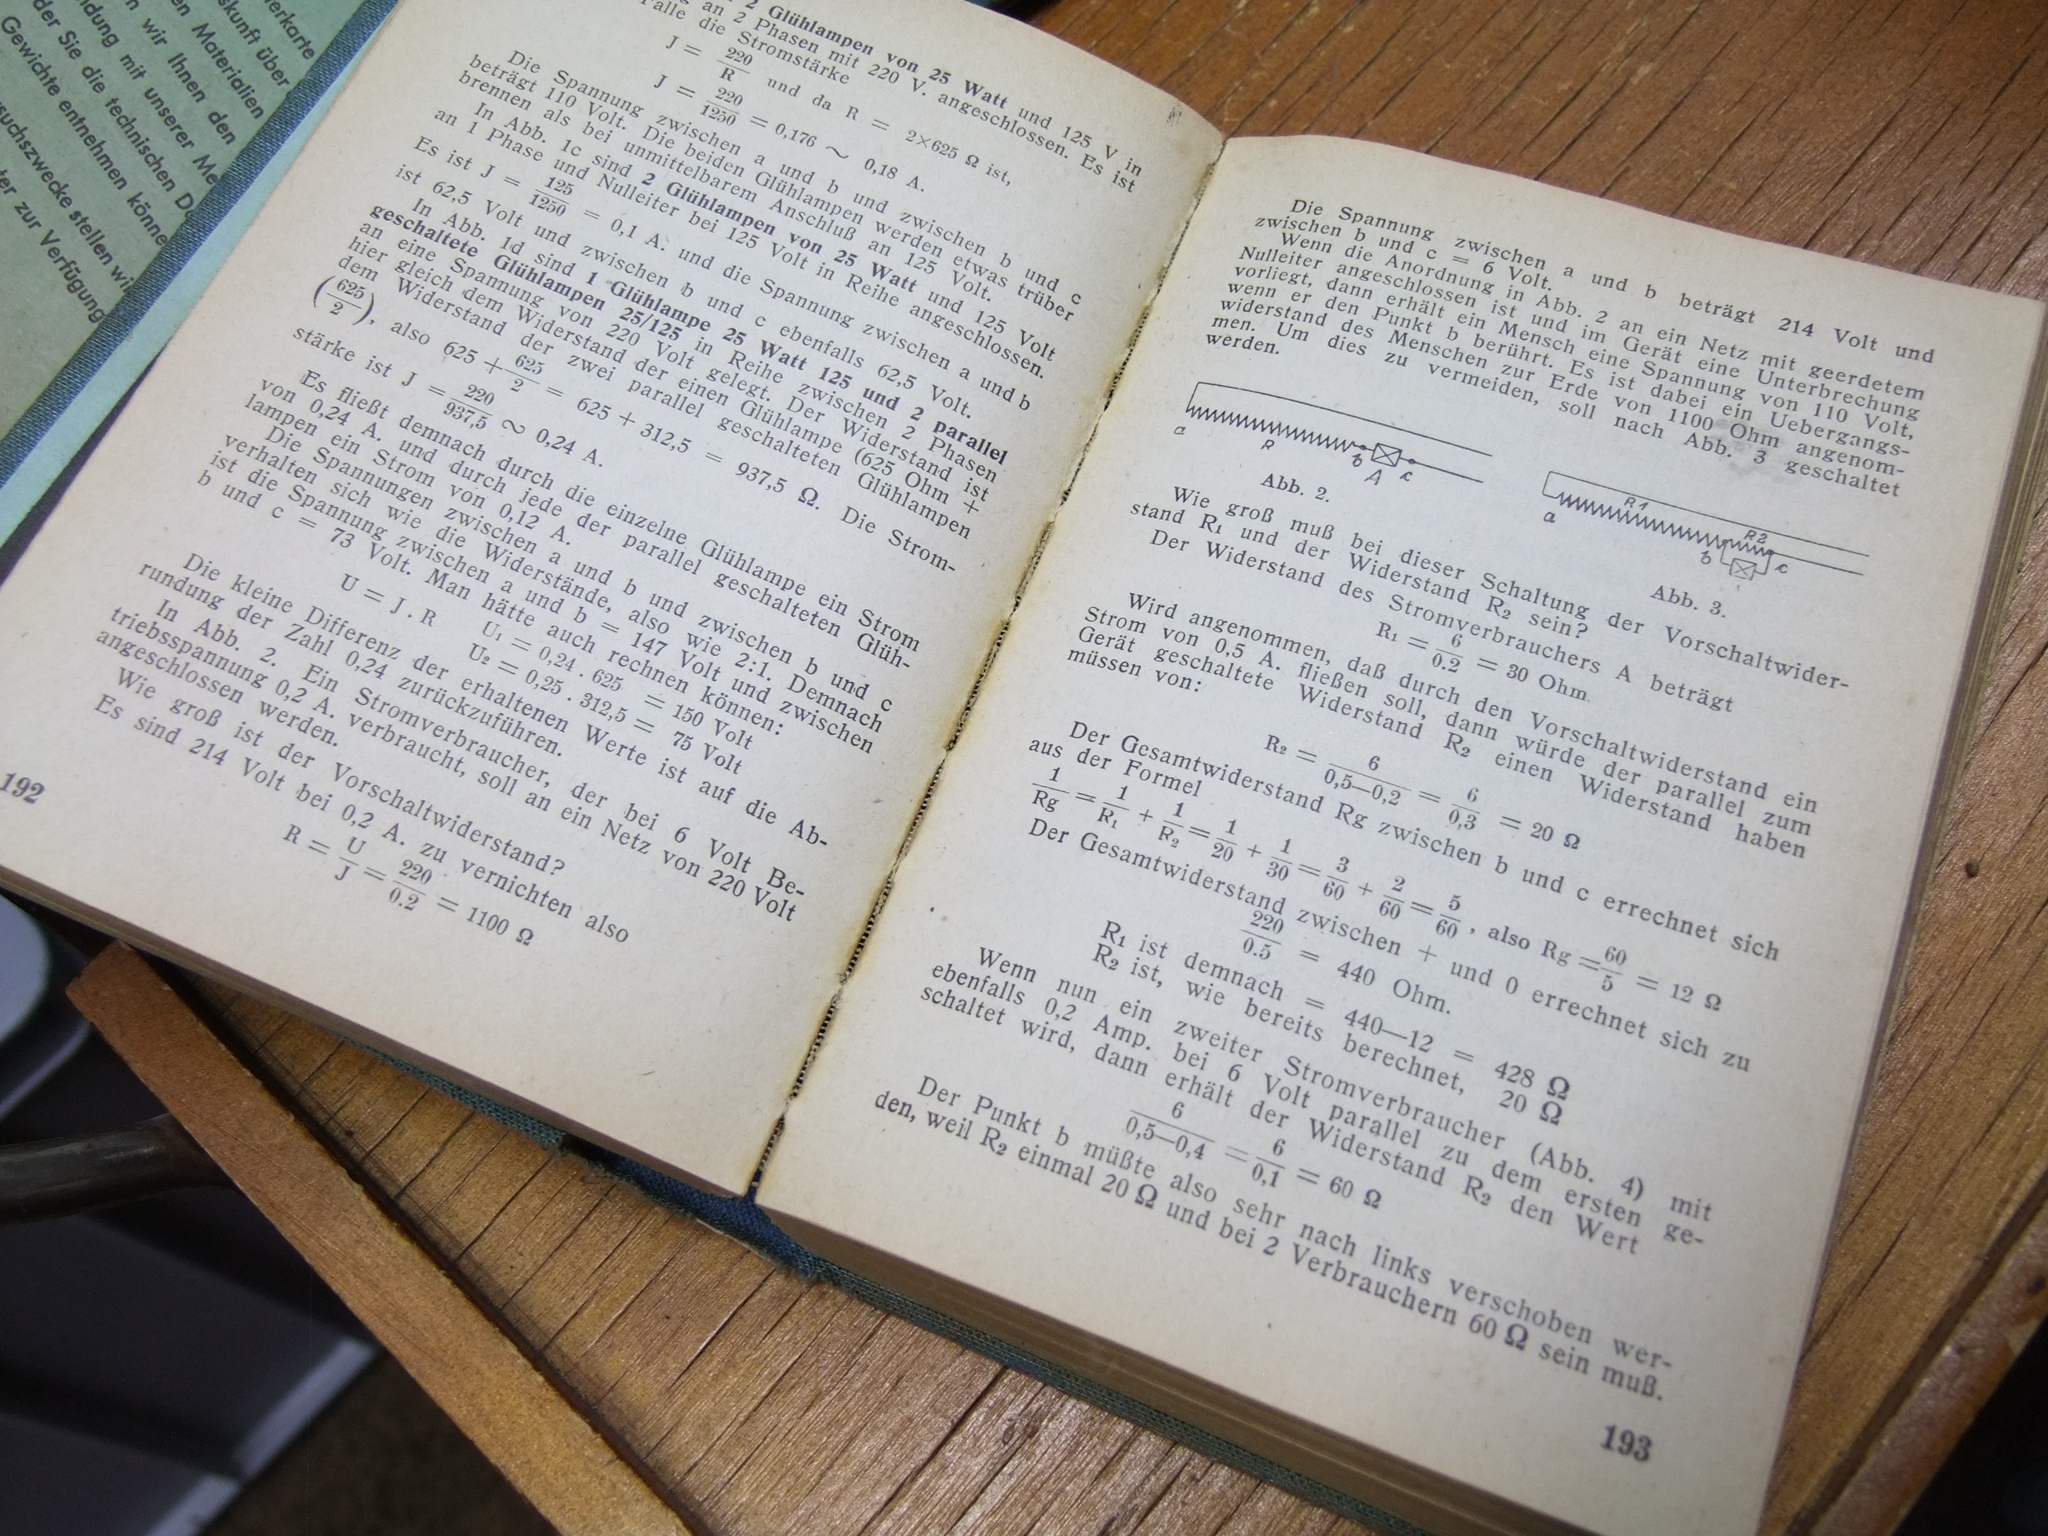 erkarte
skunft über
en Materialien
ndung mit unserer Me
n wir Ihnen den
der Sie die technischen D
Gewichte entnehmen könne
suchszwecke stellen wi
ter zur Verfügung
2 Glühlampen von 25 Watt und 125 V in
an 2 Phasen mit 220 V. angeschlossen. Es ist
Falle die Stromstärke
J = 220/R und da R = 2×625 Ω ist,
J = 220/1250 = 0,176 ~ 0,18 A.
Die Spannung zwischen a und b und zwischen b und c
beträgt 110 Volt. Die beiden Glühlampen werden etwas trüber
brennen als bei unmittelbarem Anschluß an 125 Volt.
In Abb. 1c sind 2 Glühlampen von 25 Watt und 125 Volt
an 1 Phase und Nulleiter bei 125 Volt in Reihe angeschlossen.
Es ist J = 125/1250 = 0,1 A. und die Spannung zwischen a und b
ist 62,5 Volt und zwischen b und c ebenfalls 62,5 Volt.
In Abb. 1d sind 1 Glühlampe 25 Watt 125 und 2 parallel
geschaltete Glühlampen 25/125 in Reihe zwischen 2 Phasen
an eine Spannung von 220 Volt gelegt. Der Widerstand ist
hier gleich dem Widerstand der einen Glühlampe (625 Ohm +
dem Widerstand der zwei parallel geschalteten Glühlampen
(625/2), also 625 + 625/2 = 625 + 312,5 = 937,5 Ω. Die Strom-
stärke ist J = 220/937,5 ~ 0,24 A.
Es fließt demnach durch die einzelne Glühlampe ein Strom
von 0,24 A. und durch jede der parallel geschalteten Glüh-
lampen ein Strom von 0,12 A.
Die Spannungen zwischen a und b und zwischen b und c
verhalten sich wie die Widerstände, also wie 2:1. Demnach
ist die Spannung zwischen a und b = 147 Volt und zwischen
b und c = 73 Volt. Man hätte auch rechnen können:
U = J . R U₁ = 0,24 . 625 = 150 Volt
U₂ = 0,25 . 312,5 = 75 Volt
Die kleine Differenz der erhaltenen Werte ist auf die Ab-
rundung der Zahl 0,24 zurückzuführen.
In Abb. 2. Ein Stromverbraucher, der bei 6 Volt Be-
triebsspannung 0,2 A. verbraucht, soll an ein Netz von 220 Volt
angeschlossen werden.
Wie groß ist der Vorschaltwiderstand?
Es sind 214 Volt bei 0,2 A. zu vernichten also
R = U/J = 220/0.2 = 1100 Ω
192
Die Spannung zwischen a und b beträgt 214 Volt und
zwischen b und c = 6 Volt.
Wenn die Anordnung in Abb. 2 an ein Netz mit geerdetem
Nulleiter angeschlossen ist und im Gerät eine Unterbrechung
vorliegt, dann erhält ein Mensch eine Spannung von 110 Volt,
wenn er den Punkt b berührt. Es ist dabei ein Uebergangs-
widerstand des Menschen zur Erde von 1100 Ohm angenom-
men. Um dies zu vermeiden, soll nach Abb. 3 geschaltet
werden.
a R b A c
Abb. 2.
a R1 R2 b c
Abb. 3.
Wie groß muß bei dieser Schaltung der Vorschaltwider-
stand R₁ und der Widerstand R₂ sein?
Der Widerstand des Stromverbrauchers A beträgt
R₁ = 6/0.2 = 30 Ohm.
Wird angenommen, daß durch den Vorschaltwiderstand ein
Strom von 0,5 A. fließen soll, dann würde der parallel zum
Gerät geschaltete Widerstand R₂ einen Widerstand haben
müssen von:
R₂ = 6/0,5—0,2 = 6/0,3 = 20 Ω
Der Gesamtwiderstand Rg zwischen b und c errechnet sich
aus der Formel
1/Rg = 1/R₁ + 1/R₂ = 1/20 + 1/30 = 3/60 + 2/60 = 5/60, also Rg = 60/5 = 12 Ω
Der Gesamtwiderstand zwischen + und 0 errechnet sich zu
220/0.5 = 440 Ohm.
R₁ ist demnach = 440—12 = 428 Ω
R₂ ist, wie bereits berechnet, 20 Ω
Wenn nun ein zweiter Stromverbraucher (Abb. 4) mit
ebenfalls 0,2 Amp. bei 6 Volt parallel zu dem ersten ge-
schaltet wird, dann erhält der Widerstand R₂ den Wert
6/0,5—0,4 = 6/0,1 = 60 Ω
Der Punkt b müßte also sehr nach links verschoben wer-
den, weil R₂ einmal 20 Ω und bei 2 Verbrauchern 60 Ω sein muß.
193